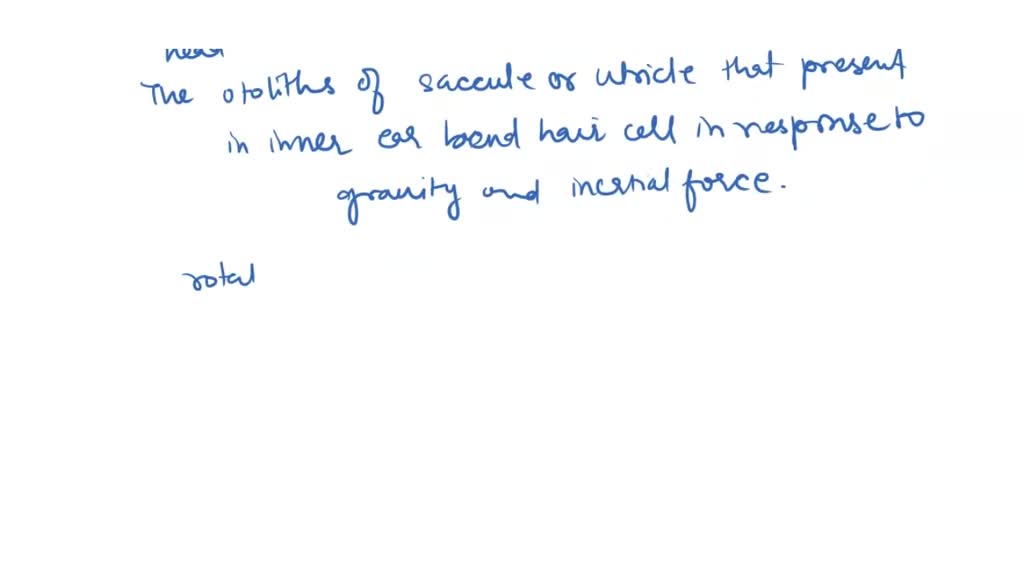 The otoliths of saccule or utricle that present
in inner ear bend hair cell in response to
gravity and inertial force.
rotal